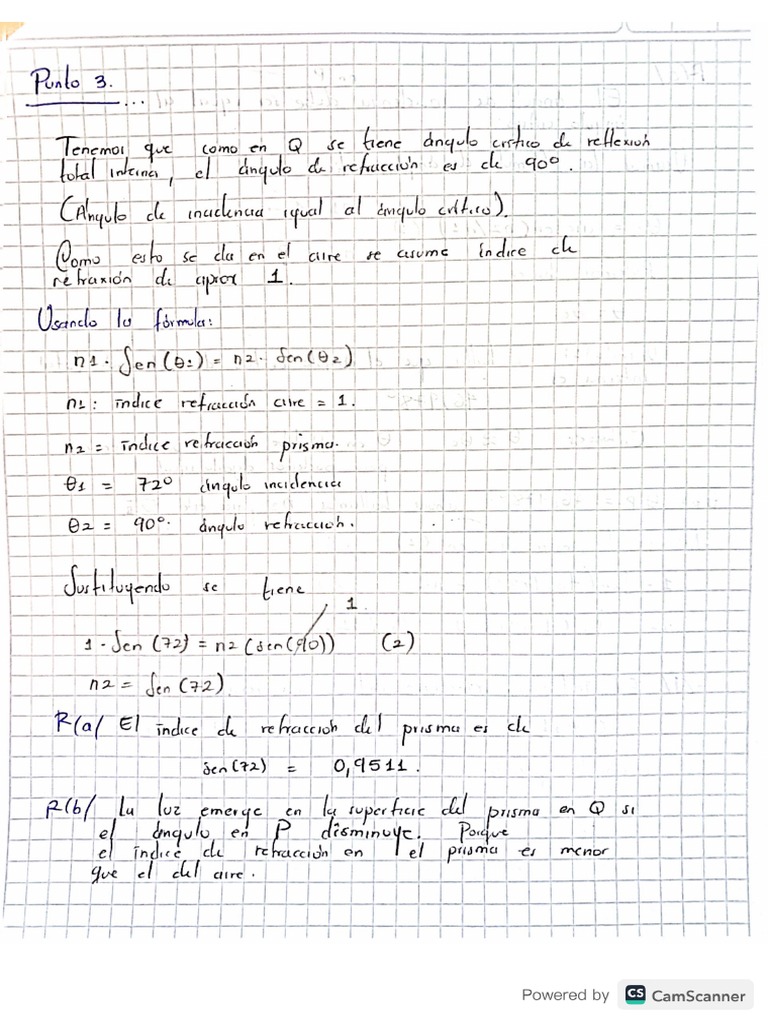 Punto 3.
Tenemos que como en Q se tiene ángulo crítico de reflexión
total interna, el ángulo de refracción es de 90°.
(Angulo de incidencia igual al ángulo crítico).
Como esto se da en el aire se asume índice de
refraxión de aprox 1.
Usando la fórmula:
n1 · Sen(θ1) = n2 · Sen(θ2)
n1: índice refracción aire = 1.
n2 = índice refracción prisma.
θ1 = 72° ángulo incidencia
θ2 = 90°. ángulo refracción.
Sustituyendo se tiene
1
1 · Sen (72) = n2 (sen(90)) (2)
n2 = Sen (72)
R(a/ El índice de refracción del prisma es de
sen(72) = 0,9511.
R(b/ La luz emerge en la superficie del prisma en Q si
el ángulo en P disminuye. Porque
el índice de refracción en el prisma es menor
que el del aire.
Powered by CS CamScanner